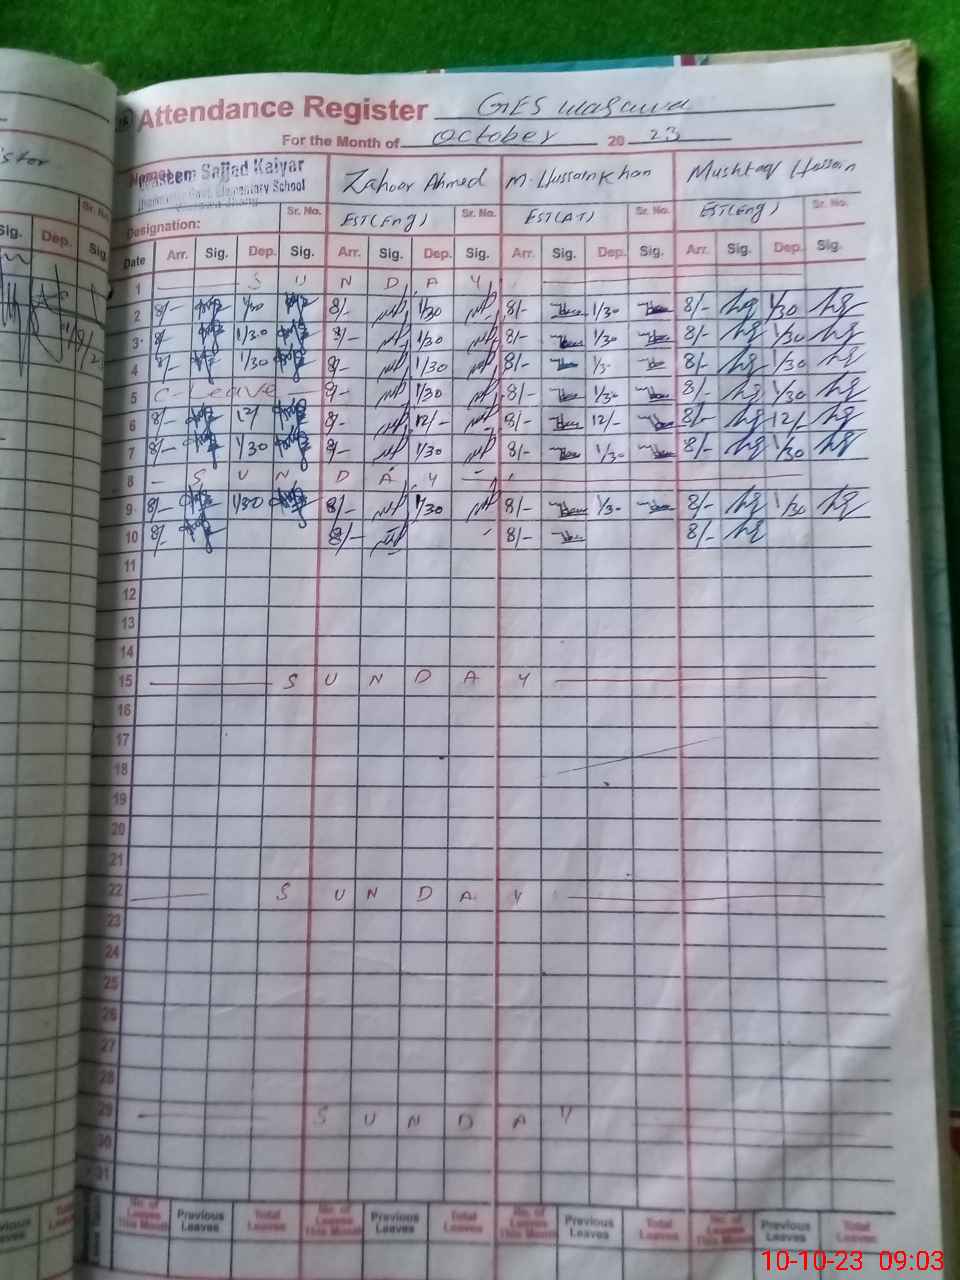 Attendance Register GES
For the Month of October 20 23
Name: Waseem Sajjad Kaiyar Zahoor Ahmed M. Hussain Khan Mushtaq Hussain
Govt. Elementary School
Designation: Sr. No. EST(Eng) Sr. No. EST(AT) Sr. No. EST(Eng) Sr. No.
Date Arr. Sig. Dep. Sig. Arr. Sig. Dep. Sig. Arr. Sig. Dep. Sig. Arr. Sig. Dep. Sig.
1 S U N D A Y
2 8/- 1/30 8/- 1/30 8/- 1/30 8/- 1/30
3 8/- 1/30 8/- 1/30 8/- 1/30 8/- 1/30
4 8/- 1/30 8/- 1/30 8/- 1/3- 8/- 1/30
5 C-Leave 8- 1/30 8/- 1/3- 8/- 1/30
6 8/- 12/ 8- 12/- 8/- 12/- 8/- 12/-
7 8/- 1/30 8- 1/30 8/- 1/30 8/- 1/30
8 S U N D A Y
9 8/- 1/30 8/- 1/30 8/- 1/3- 8/- 1/30
10 8/- 8/- 8/- 8/-
11
12
13
14
15 S U N D A Y
16
17
18
19
20
21
22 S U N D A Y
23
24
25
26
27
28
29 S U N D A Y
30
31
No. of Leaves This Month Previous Leaves Total Leaves No. of Leaves This Month Previous Leaves Total Leaves No. of Leaves This Month Previous Leaves Total Leaves No. of Leaves This Month Previous Leaves Total Leaves
Sig. Dep. Sig.
Sr. No.
10-10-23 09:03